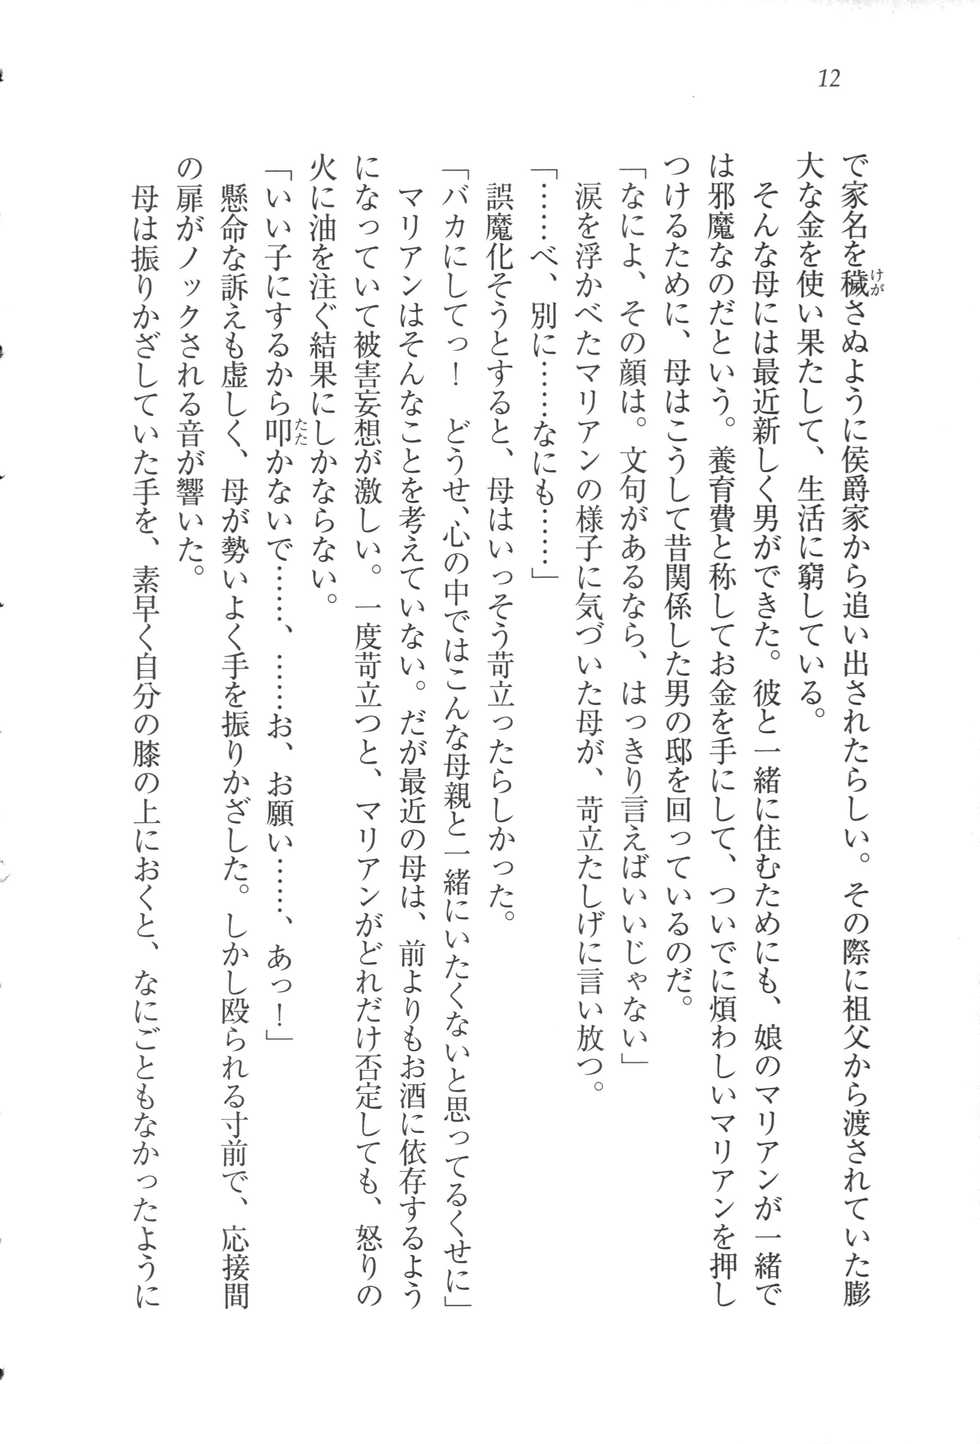 12
で家名を穢さぬように侯爵家から追い出されたらしい。その際に祖父から渡されていた膨
大な金を使い果たして、生活に窮している。
そんな母には最近新しく男ができた。彼と一緒に住むためにも、娘のマリアンが一緒で
は邪魔なのだという。養育費と称してお金を手にして、ついでに煩わしいマリアンを押し
つけるために、母はこうして昔関係した男の邸を回っているのだ。
「なによ、その顔は。文句があるなら、はっきり言えばいいじゃない」
涙を浮かべたマリアンの様子に気づいた母が、苛立たしげに言い放つ。
「……べ、別に……なにも……」
誤魔化そうとすると、母はいっそう苛立ったらしかった。
「バカにしてっ！　どうせ、心の中ではこんな母親と一緒にいたくないと思ってるくせに」
マリアンはそんなことを考えていない。だが最近の母は、前よりもお酒に依存するよう
になっていて被害妄想が激しい。一度苛立つと、マリアンがどれだけ否定しても、怒りの
火に油を注ぐ結果にしかならない。
「いい子にするから叩かないで……、……お、お願い……、あっ！」
懸命な訴えも虚しく、母が勢いよく手を振りかざした。しかし殴られる寸前で、応接間
の扉がノックされる音が響いた。
母は振りかざしていた手を、素早く自分の膝の上におくと、なにごともなかったように